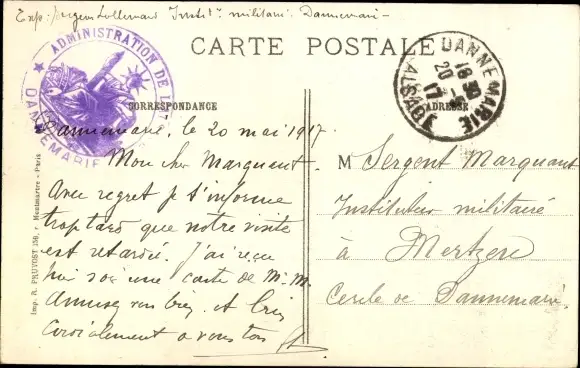 Exp: Sergent Lallemand Instit.r militaire Dannemarie
CARTE POSTALE
ADMINISTRATION DE L'
DANNEMARIE
DANNEMARIE
18 30
20 -5
17
ALSACE
CORRESPONDANCE
ADRESSE
Dannemarie, le 20 mai 1917.
Mon cher Marquant.
Avec regret je t'informe
trop tard que notre visite
est retardée. J'ai reçu
hier soir une carte de M. M.
Amusez vous bien. A
Cordialement a vous tous
M Sergent Marquant
Instituteur militaire
à Mertzen
Cercle de Dannemarie.
Imp. R. PRUVOST 159, r. Montmartre - Paris